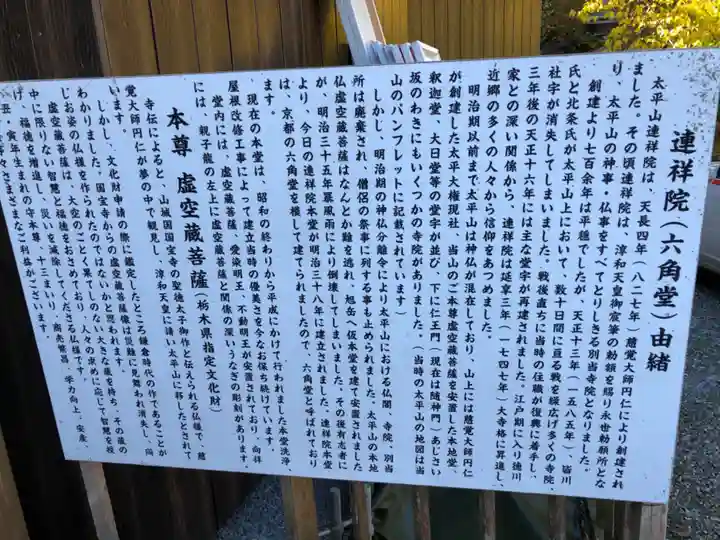 連祥院（六角堂）由緒
太平山連祥院は、天長四年（八二七年）慈覚大師円仁により創建され
ました。その頃連祥院は、淳和天皇御宸筆の勅額を賜り永世勅願所とな
り、太平山の神事・仏事をすべてとりしきる別当寺院となりました。
創建より七百余年は平穏でしたが、天正十三年（一五八五年）、皆川
氏と北条氏が太平山上において、数十日間に亘る戦を繰広げ多くの寺院、
社宇が消失してしまいました。戦後直ちに当時の住職が復興に着手し、
三年後の天正十六年には主な堂宇が再建されました。江戸期に入り徳川
家との深い関係から、連祥院は延享三年（一七四七年）大寺格に昇進し、
近郷の多くの人々から信仰をあつめました。
明治期以前まで太平山は神仏が混在しており、山上には慈覚大師円仁
が創建した太平大権現社、当山のご本尊虚空蔵菩薩を安置した本地堂、
釈迦堂、大日堂等の堂宇が並び、下に仁王門（現在は随神門）あじさい
坂のわきにもいくつかの寺院がありました。（当時の太平山の地図は当
山のパンフレットに記載されています）
しかし、明治期の神仏分離令により太平山における仏閣、寺院、別当
所は廃棄され、僧侶の祭事に列する事も止められました。太平山の本地
仏虚空蔵菩薩はなんとか難を逃れ、旭岳へ仮本堂を建て安置されました
が、明治三十五年暴風雨により倒壊してしまいました。その後有志者に
より、今日の連祥院本堂が明治三十八年に建立されました。連祥院本堂
は、京都の六角堂を模して建てられましたので、六角堂と呼ばれており
ます。
現在の本堂は、昭和の終わりから平成にかけて行われました本堂洗浄、
屋根改修工事によって建立当時の優美さを今なお保ち続けています。
堂内には、虚空蔵菩薩、愛染明王、不動明王が安置されており、向拝
には、親子龍の左上に虚空蔵菩薩と関係の深いうなぎの彫刻があります。
本尊 虚空蔵菩薩（栃木県指定文化財）
寺伝によると、山城国国宝寺の聖徳太子御作と伝えられる仏様で、慈
覚大師円仁が夢の中で観見し、淳和天皇に請い太平山に移したとされて
います。
しかし、文化財申請の際に鑑定したところ鎌倉時代の作であることが
わかりました。国宝寺からの虚空蔵菩薩像は災難に見舞われ消失し、同
じお姿の仏様を作られたのではないかと思われます。
虚空蔵菩薩は、大空のごとく果てしのない大きな蔵を持ち、その蔵の
中に限りない智慧と福徳をおさめており、人々の求めに応じて智慧を授
け、福徳を増進し、災いを滅除してくださる仏様です。
丑・寅年生まれの守本尊、十三まいり、商売繁昌、学力向上、安産、
さまざまなご利益がございます。